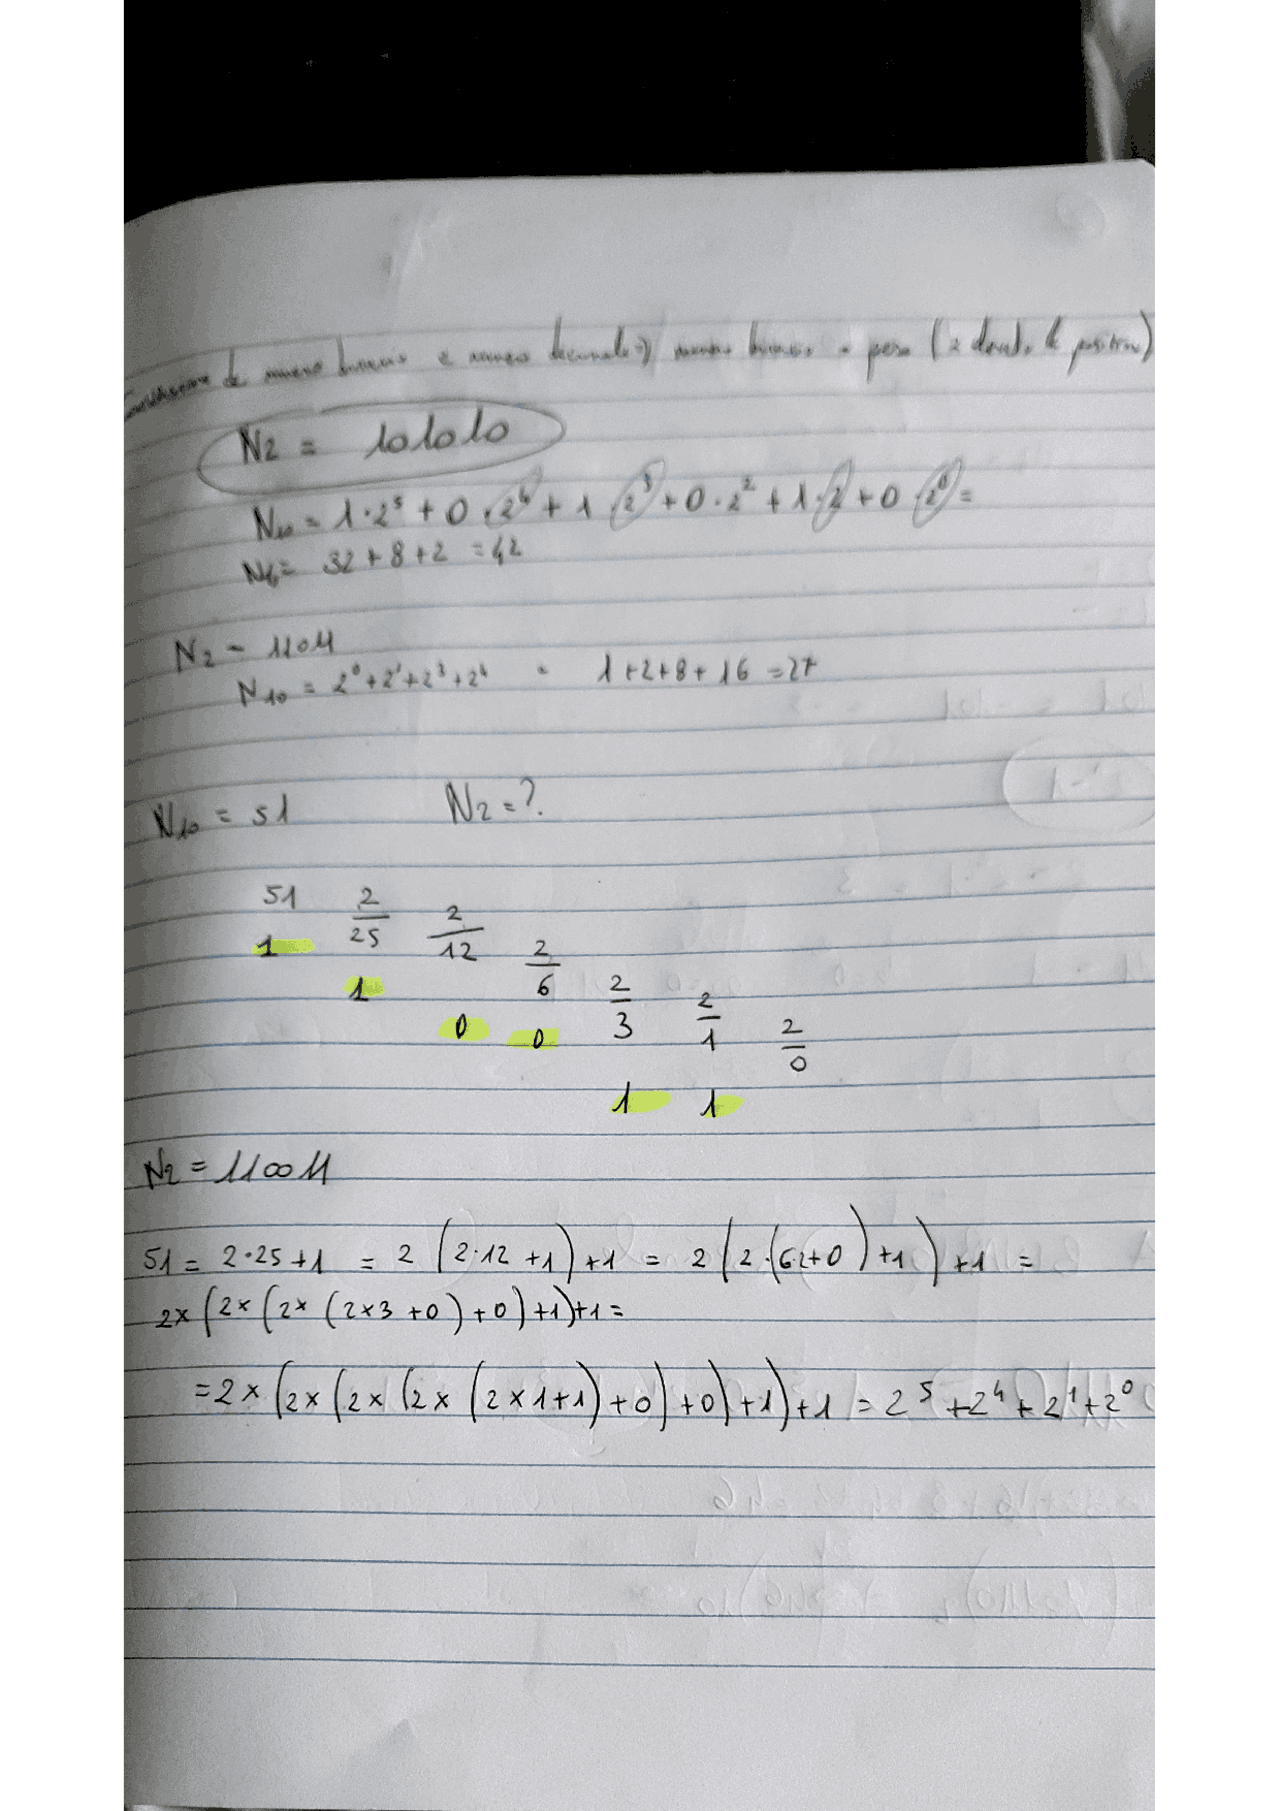 Conversione da numero binario a numero decimale => numero binario a peso (a seconda la position)
N2 = 101010
N10 = 1·2^5 + 0·2^4 + 1 2^3 + 0·2^2 + 1·2 + 0 2^0 =
N10 = 32 + 8 + 2 = 42
N2 = 11011
N10 = 2^0+2^1+2^3+2^4 = 1+2+8+16 = 27
N10 = 51 N2 = ?
51 2
1 25 2
1 12 2
0 6 2
0 3 2
1 1 2
1 0
N2 = 110011
51 = 2·25+1 = 2 (2·12+1)+1 = 2(2·(6·2+0)+1)+1 =
2×(2×(2×(2×3+0)+0)+1)+1=
=2×(2×(2×(2×(2×1+1)+0)+0)+1)+1 = 2^5+2^4+2^1+2^0